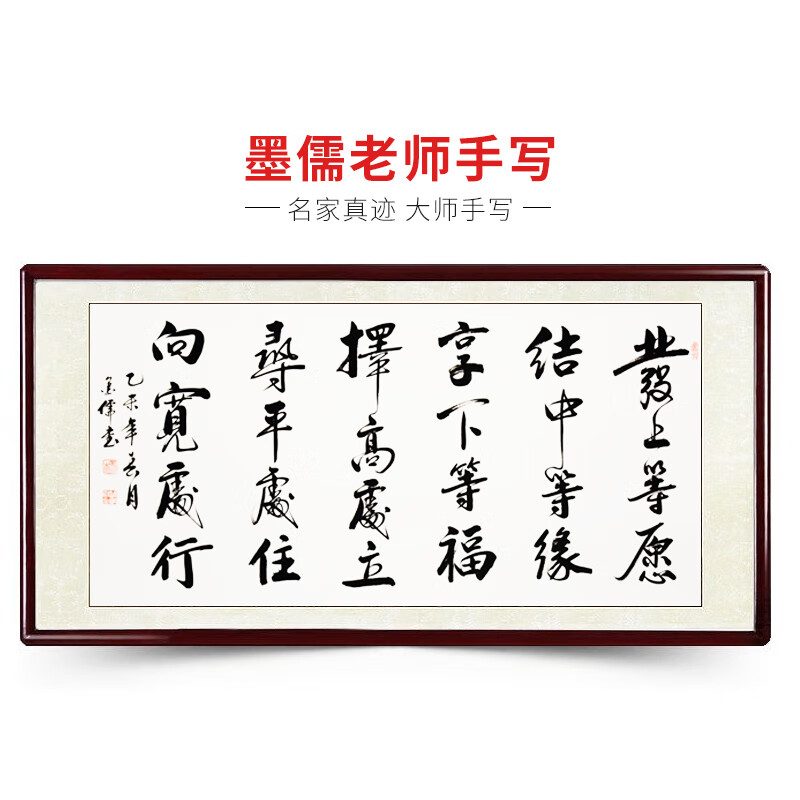 墨儒老师手写
名家真迹 大师手写
發上等愿
结中等缘
享下等福
擇高處立
尋平處住
向寬處行
乙未年春月
墨儒书